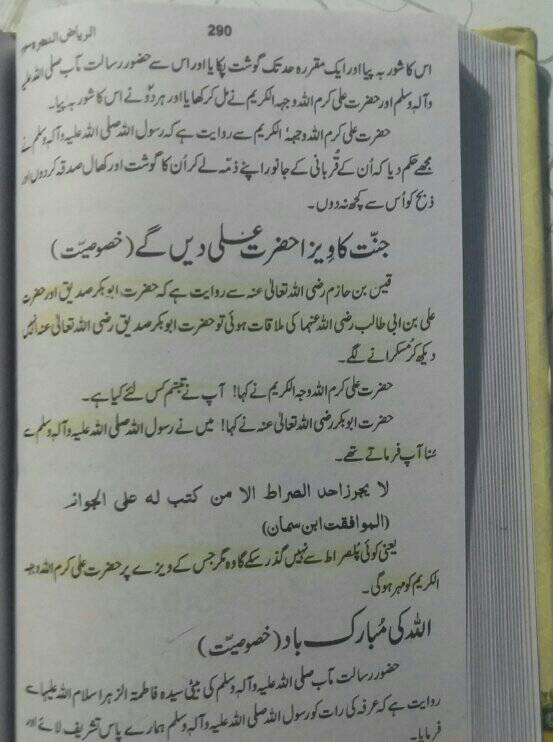 290
الریاض النضرہ سوم
اس کا شوربہ پیا اور ایک مقررہ حد تک گوشت پکایا اور اس سے حضور رسالت مآب صلی اللہ علیہ
وآلہٖ وسلم اور حضرت علی کرم اللہ وجہہ الکریم نے مل کر کھایا اور ہر دو نے اس کا شوربہ پیا۔
حضرت علی کرم اللہ وجہہُ الکریم سے روایت ہے کہ رسول اللہ صلی اللہ علیہ وآلہٖ وسلم نے
مجھے حکم دیا کہ اُن کے قُربانی کے جانور اپنے ذمّہ لے کر اُن کا گوشت اور کھال صدقہ کر دوں اور
ذبح کو اُس سے کچھ نہ دوں۔
جنّت کا وِیزا حضرت علی دیں گے (خصوصیّت)
قیس بن حازم رضی اللہ تعالیٰ عنہ سے روایت ہے کہ حضرت ابوبکر صدیق اور حضرت
علی بن ابی طالب رضی اللہ عنہما کی ملاقات ہوئی تو حضرت ابوبکر صدیق رضی اللہ تعالیٰ عنہ انہیں
دیکھ کر مُسکرانے لگے۔
حضرت علی کرم اللہ وجہ الکریم نے کہا! آپ نے تبسّم کس لئے کیا ہے۔
حضرت ابوبکر رضی اللہ تعالیٰ عنہ نے کہا! میں نے رسول اللہ صلی اللہ علیہ وآلہٖ وسلم سے
سُنا آپ فرماتے تھے۔
لا یجرز احد الصراط الا من کتب له علی الجواز
(الموافقت ابن سمان)
یعنی کوئی پُلصراط سے نہیں گذر سکے گا وہ مگر جس کے ویزے پر حضرت علی کرم اللہ وجہہ
الکریم کو مہر ہو گی۔
اللہ کی مُبارک باد (خصوصیّت)
حضور رسالت مآب صلی اللہ علیہ وآلہٖ وسلم کی بیٹی سیّدہ فاطمۃ الزہرا سلام اللہ علیہا سے
روایت ہے کہ عرفہ کی رات کو رسول اللہ صلی اللہ علیہ وآلہٖ وسلم ہمارے پاس تشریف لائے اور
فرمایا۔